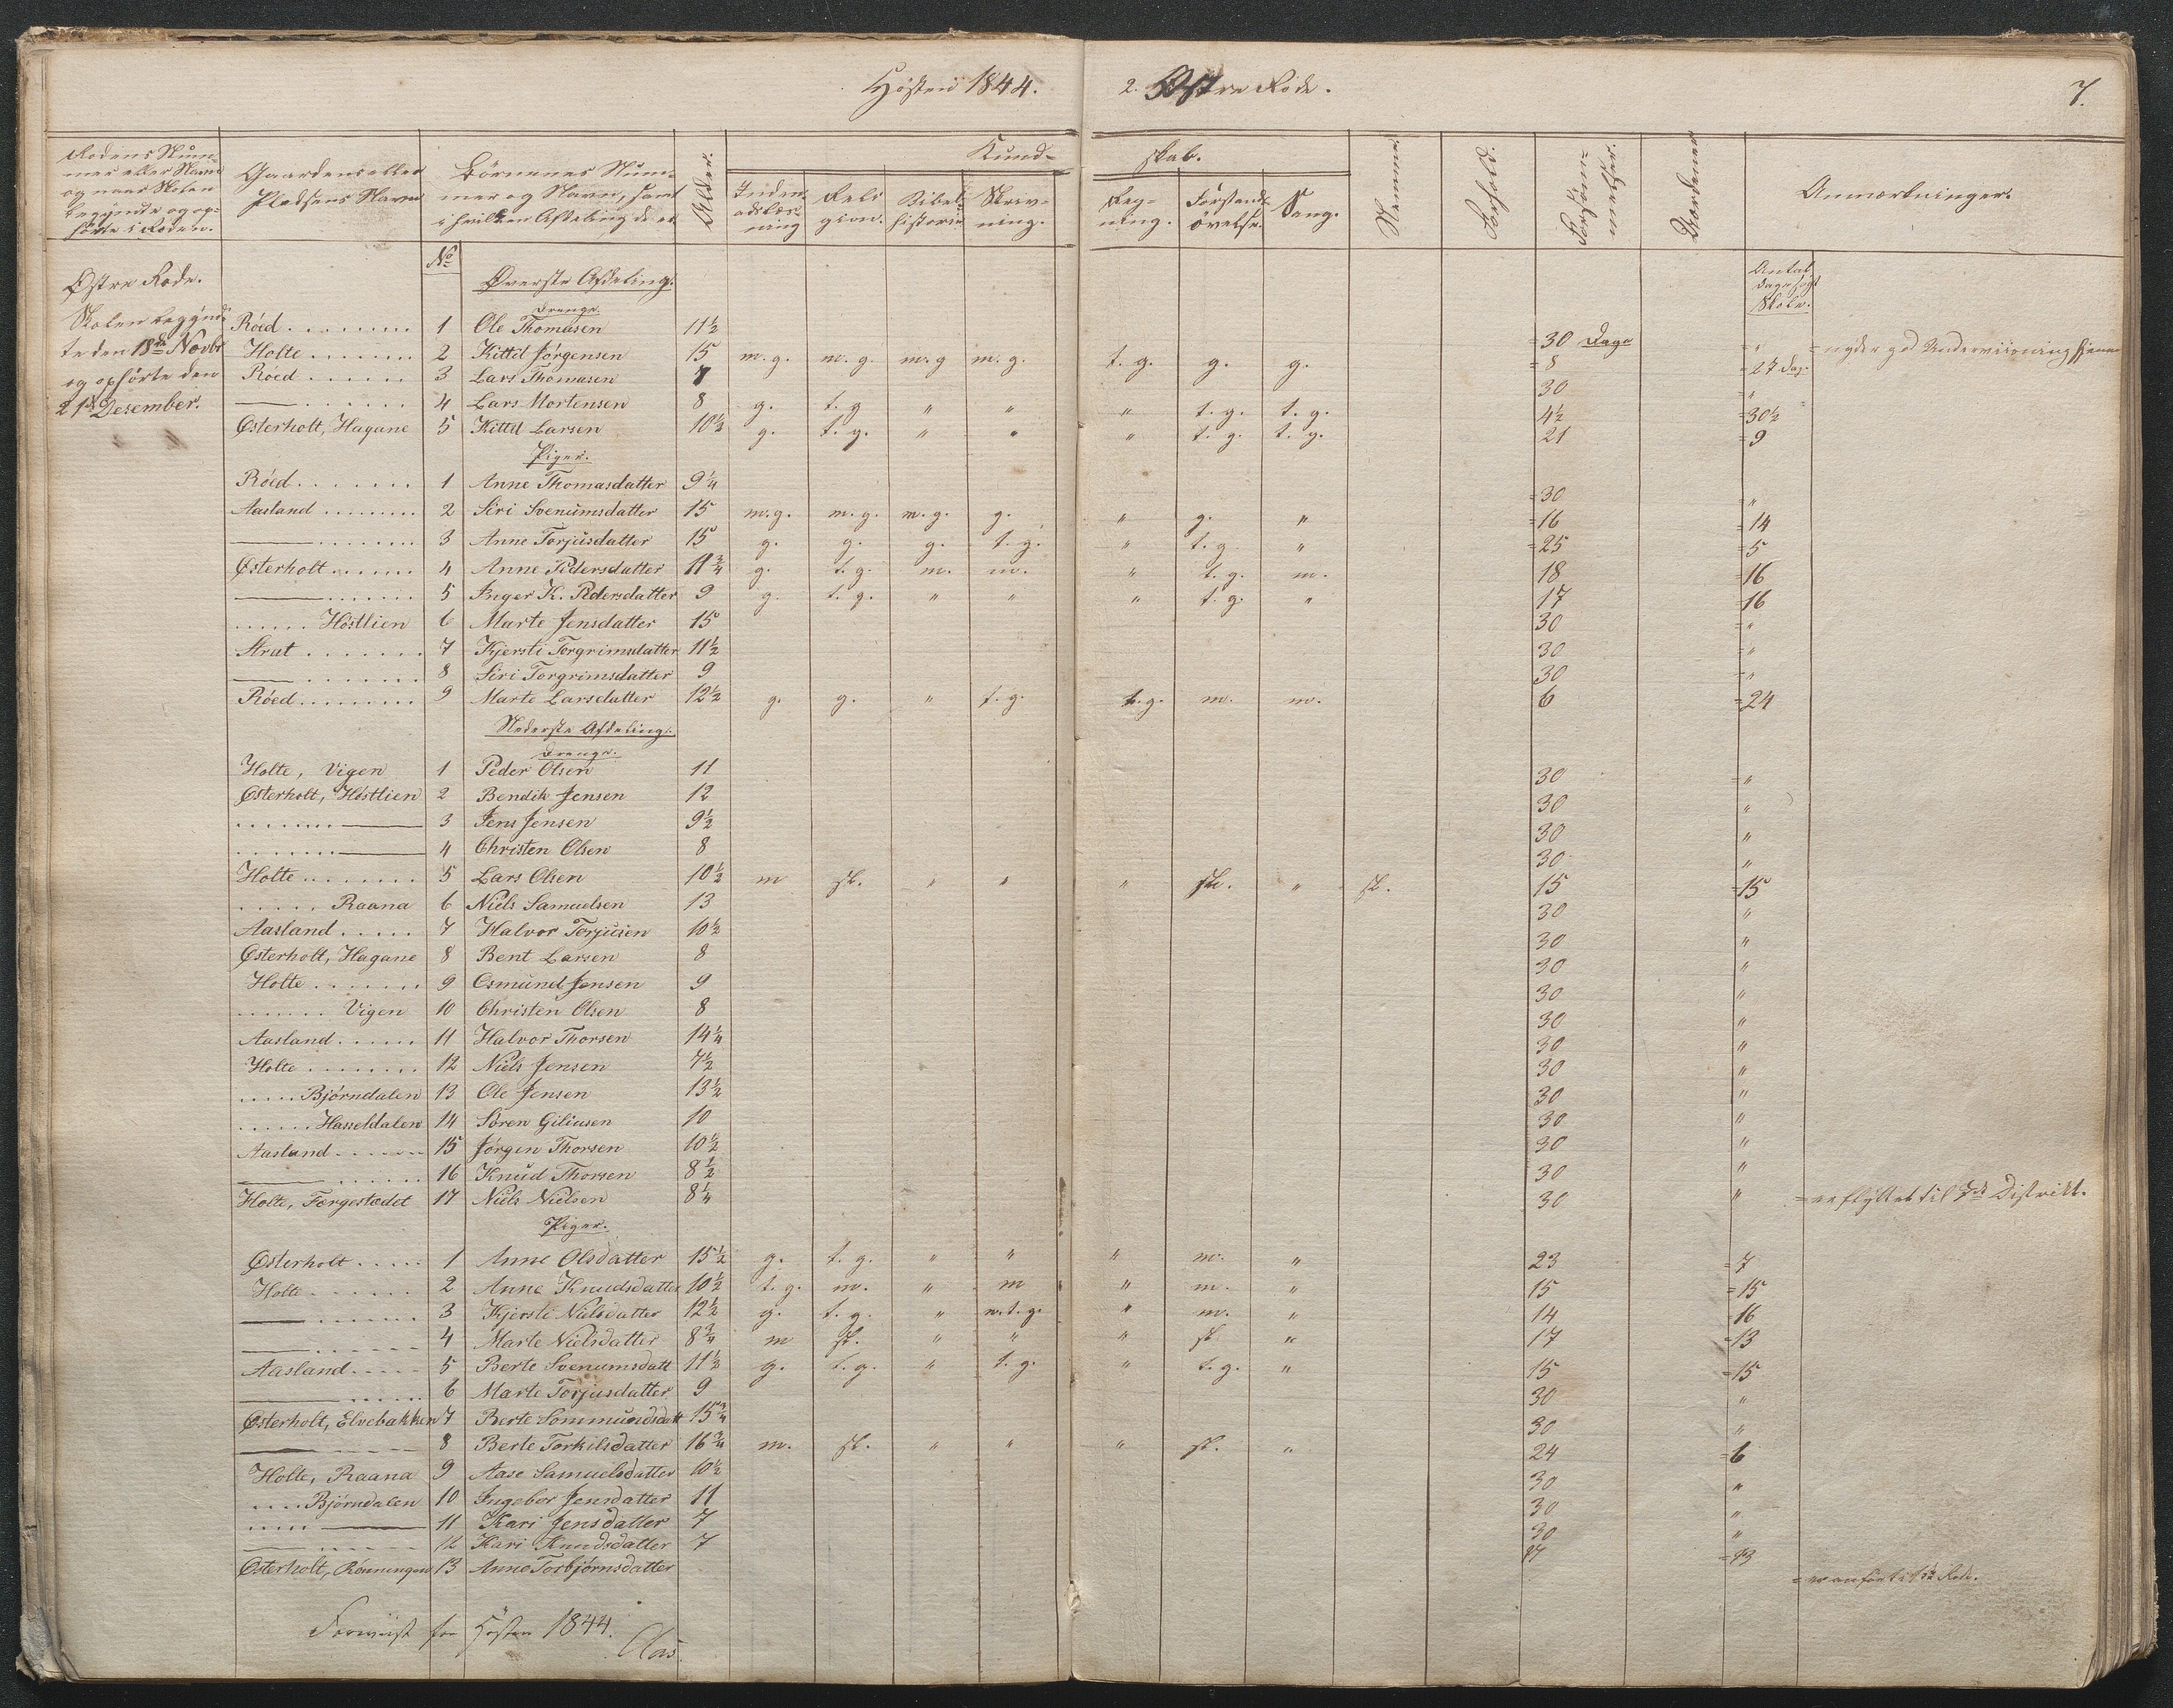 Høsten 1844.
2. Østre Rode.
7.
Rodens Num-
mer eller Navn
og naar Skolen
begyndte og op-
hørte i Roden.
Gaardens eller
Pladsens Navn
Børnenes Num-
mer og Navn, samt
i hvilken Afdeling de er
Alder.
Kund-
skab.
Inden-
adslæs-
ning
Reli
gion.
Bibel-
historie
Skriv-
ning.
Reg-
ning.
Forstands-
øvelse.
Sang.
Nemme.
Forhold.
Forsøm-
melser.
Anmærkninger.
Østre Rode.
Skolen begynd-
te den 18de Novbr
og ophørte den
21de Desember.
No
Øverste Afdeling.
Antal
Dage søgt
Skole.
Drenge.
Röed 1 Ole Thomasen 11½ = 30 Dage = " = nyder god Underviisning hjemme
Holte 2 Kittil Jörgensen 15 m. g. m. g. m. g m. g. t. g. g. g. = 8 = 27 Dag.
Röed 3 Lars Thomasen 7 30 = "
—— 4 Lars Mortensen 8 g. t. g " " " t. g. t. g. 4½ = 30½
Österholt, Hagane 5 Kittil Larsen 10½ g. t. g. " " " t. g. t. g. 21 = 9
Piger.
Röed 1 Anne Thomasdatter 9¼ = 30 = "
Aasland 2 Siri Svenumsdatter 15 m. g. m. g. m. g. g. " g. " = 16 = 14
—— 3 Anne Torjusdatter 15 g. g. g. t. g. " t. g " = 25 = 5
Österholt 4 Anne Pedersdatter 11¾ g. t. g. m. m. " t. g. m. 18 = 16
—— 5 Inger K. Pedersdatter 9 g. t. g. " " " t. g. " 17 = 16
Höstlien 6 Marte Jensdatter 15 30 = "
Strat 7 Kjersti Torgrimsdatter 11½ 30 = "
—— 8 Siri Torgrimsdatter 9 30 = "
Röed 9 Marte Larsdatter 12½ g. g. " t. g. t. g. m. m. 6 = 24
Nederste Afdeling.
Drenge.
Holte, Vigen 1 Peder Olsen 11 30 = "
Österholt, Höstlien 2 Bendik Jensen 12 30 "
—— 3 Jens Jensen 9½ 30 "
—— 4 Christen Olsen 8 30 "
Holte 5 Lars Olsen 10½ m sl. " " " sl. " sl. 15 = 15
Raana 6 Niels Samuelsen 13 30 "
Aasland 7 Halvor Torjusen 10½ 30 "
Österholt, Hagane 8 Bent Larsen 8 30 "
Holte 9 Osmund Jensen 9 30 "
Vigen 10 Christen Olsen 8 30 "
Aasland 11 Halvor Thorsen 14¼ 30 "
Holte 12 Niels Jensen 7½ 30 "
Björndalen 13 Ole Jensen 13½ 30 "
Hasseldalen 14 Sören Giliusen 10 30 "
Aasland 15 Jörgen Thorsen 10½ 30 "
—— 16 Knud Thorsen 8½ 30 "
Holte, Færgestædet 17 Niels Nielsen 8¼ 30 " = er flyttet til 7de Distrikt.
Piger.
Österholt 1 Anne Olsdatter 15½ g. t. g. " " " m. " 23 = 7
Holte 2 Anne Knudsdatter 10½ t. g. m. " m " m. " 15 = 15
—— 3 Kjersti Nielsdatter 12½ g. t. g. " m. t. g. " m. " 14 16
—— 4 Marte Nielsdatter 8¾ m sl. " " " sl " 17 = 13
Aasland 5 Berte Svenumsdatt 11½ g. t. g. " t. g. " t. g. " 15 = 15
—— 6 Marte Torjusdatter 9 30 "
Österholt, Elvebakken 7 Berte Sommundsdatt 15¾ 30 "
—— 8 Berte Torkilsdatter 16¾ m. sl. " " " sl. " 24 = 6
Holte, Raana 9 Aase Samuelsdatter 10½ 30 "
Björndalen 10 Ingebor Jensdatter 11 30 "
—— 11 Kari Jensdatter 7 30 "
—— 12 Kari Knudsdatter 7 17 = 13
Österholt, Rönningen 13 Anne Torbjörnsdatter = er anført i 1ste Rode.
Foreviist for Høsten 1844.